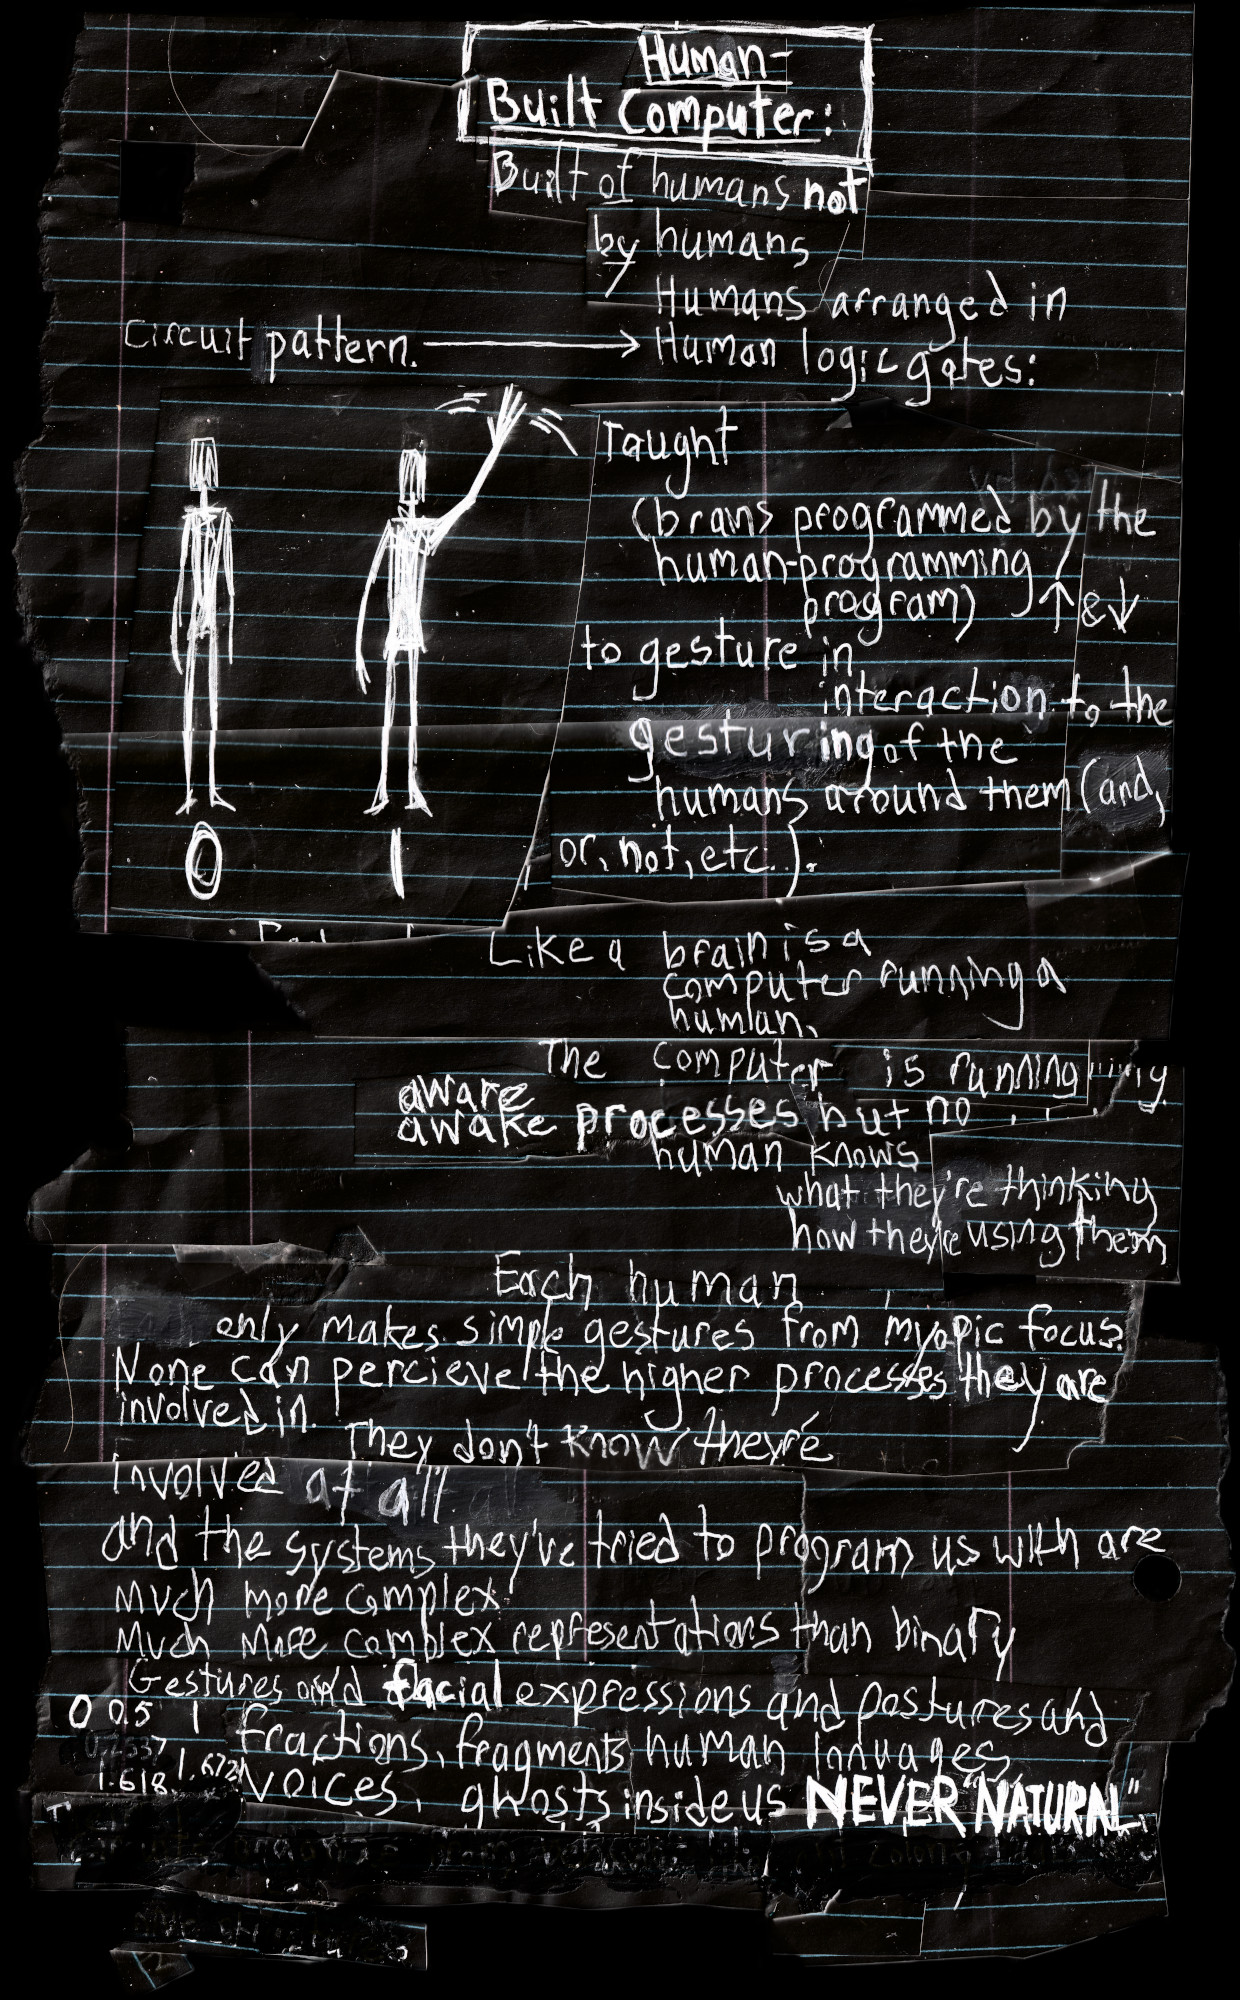 Human-
Built Computer:
Built of humans not
by humans
Humans arranged in
Circuit pattern. → Human logic gates:
Taught
(brans programmed by the
human-programming
program) ↑ & ↓
to gesture in
interaction to the
gesturing of the
humans around them (and,
or, not, etc.).
0 1
Like a brain is a
computer running a
human.
The computer is running
aware
awake processes but no
human knows
what they're thinking
how they're using them
Each human
only makes simple gestures from myopic focus.
None can percieve the higher processes they are
involved in.
They don't know they're
involved at all
and the systems they've tried to program us with are
much more complex
much more complex representations than binary
Gestures and facial expressions and postures and
0 0.5 1
fractions, fragments human lanuages,
1.618
voices, ghosts inside us NEVER "NATURAL"